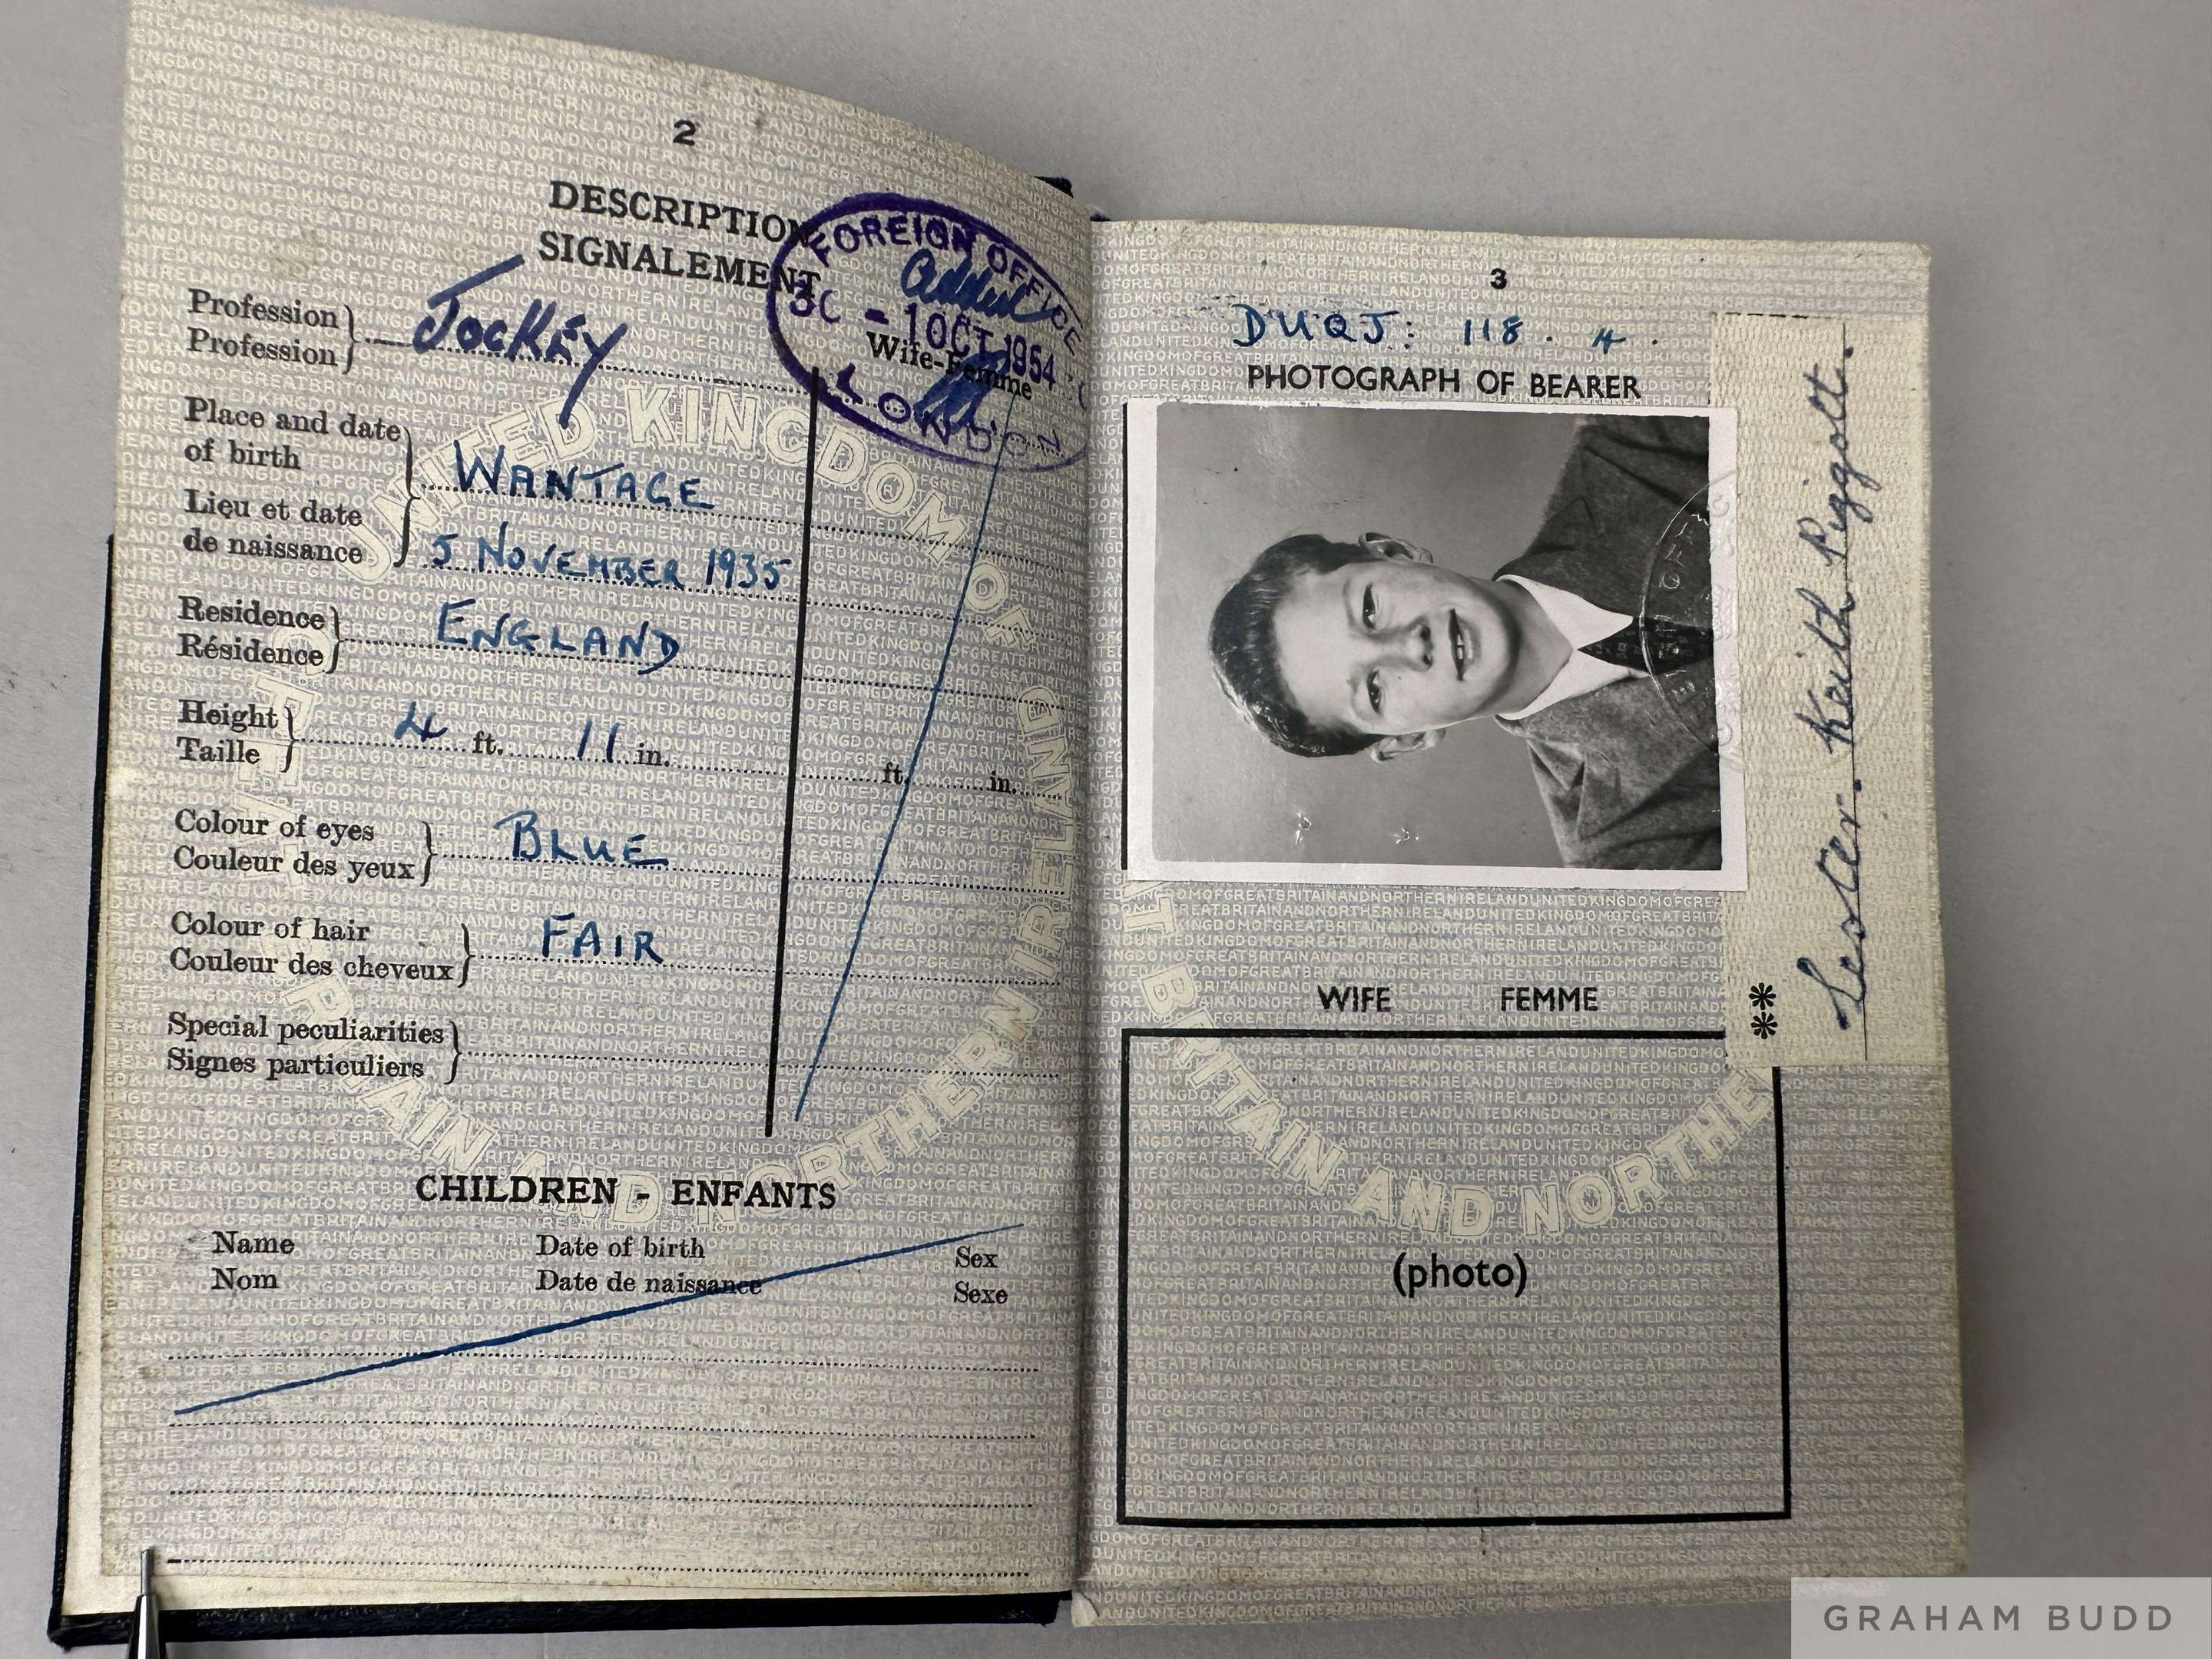 2
DESCRIPTION
SIGNALEMENT
FOREIGN OFFICE
1 OCT 1954
LONDON
Wife-Femme
Profession
Profession
Jockey
Place and date
of birth
Lieu et date
de naissance
WANTAGE
5 NOVEMBER 1935
Residence
Résidence
ENGLAND
Height
Taille
4 ft. 11 in.
ft. in.
Colour of eyes
Couleur des yeux
BLUE
Colour of hair
Couleur des cheveux
FAIR
Special peculiarities
Signes particuliers
CHILDREN - ENFANTS
Name Date of birth Sex
Nom Date de naissance Sexe
UNITED KINGDOM OF GREAT BRITAIN AND NORTHERN IRELAND
3
DUQJ: 118. 4.
PHOTOGRAPH OF BEARER
Lester. Keith Piggott.
WIFE FEMME
(photo)
T BRITAIN AND NORTHE
GRAHAM BUDD